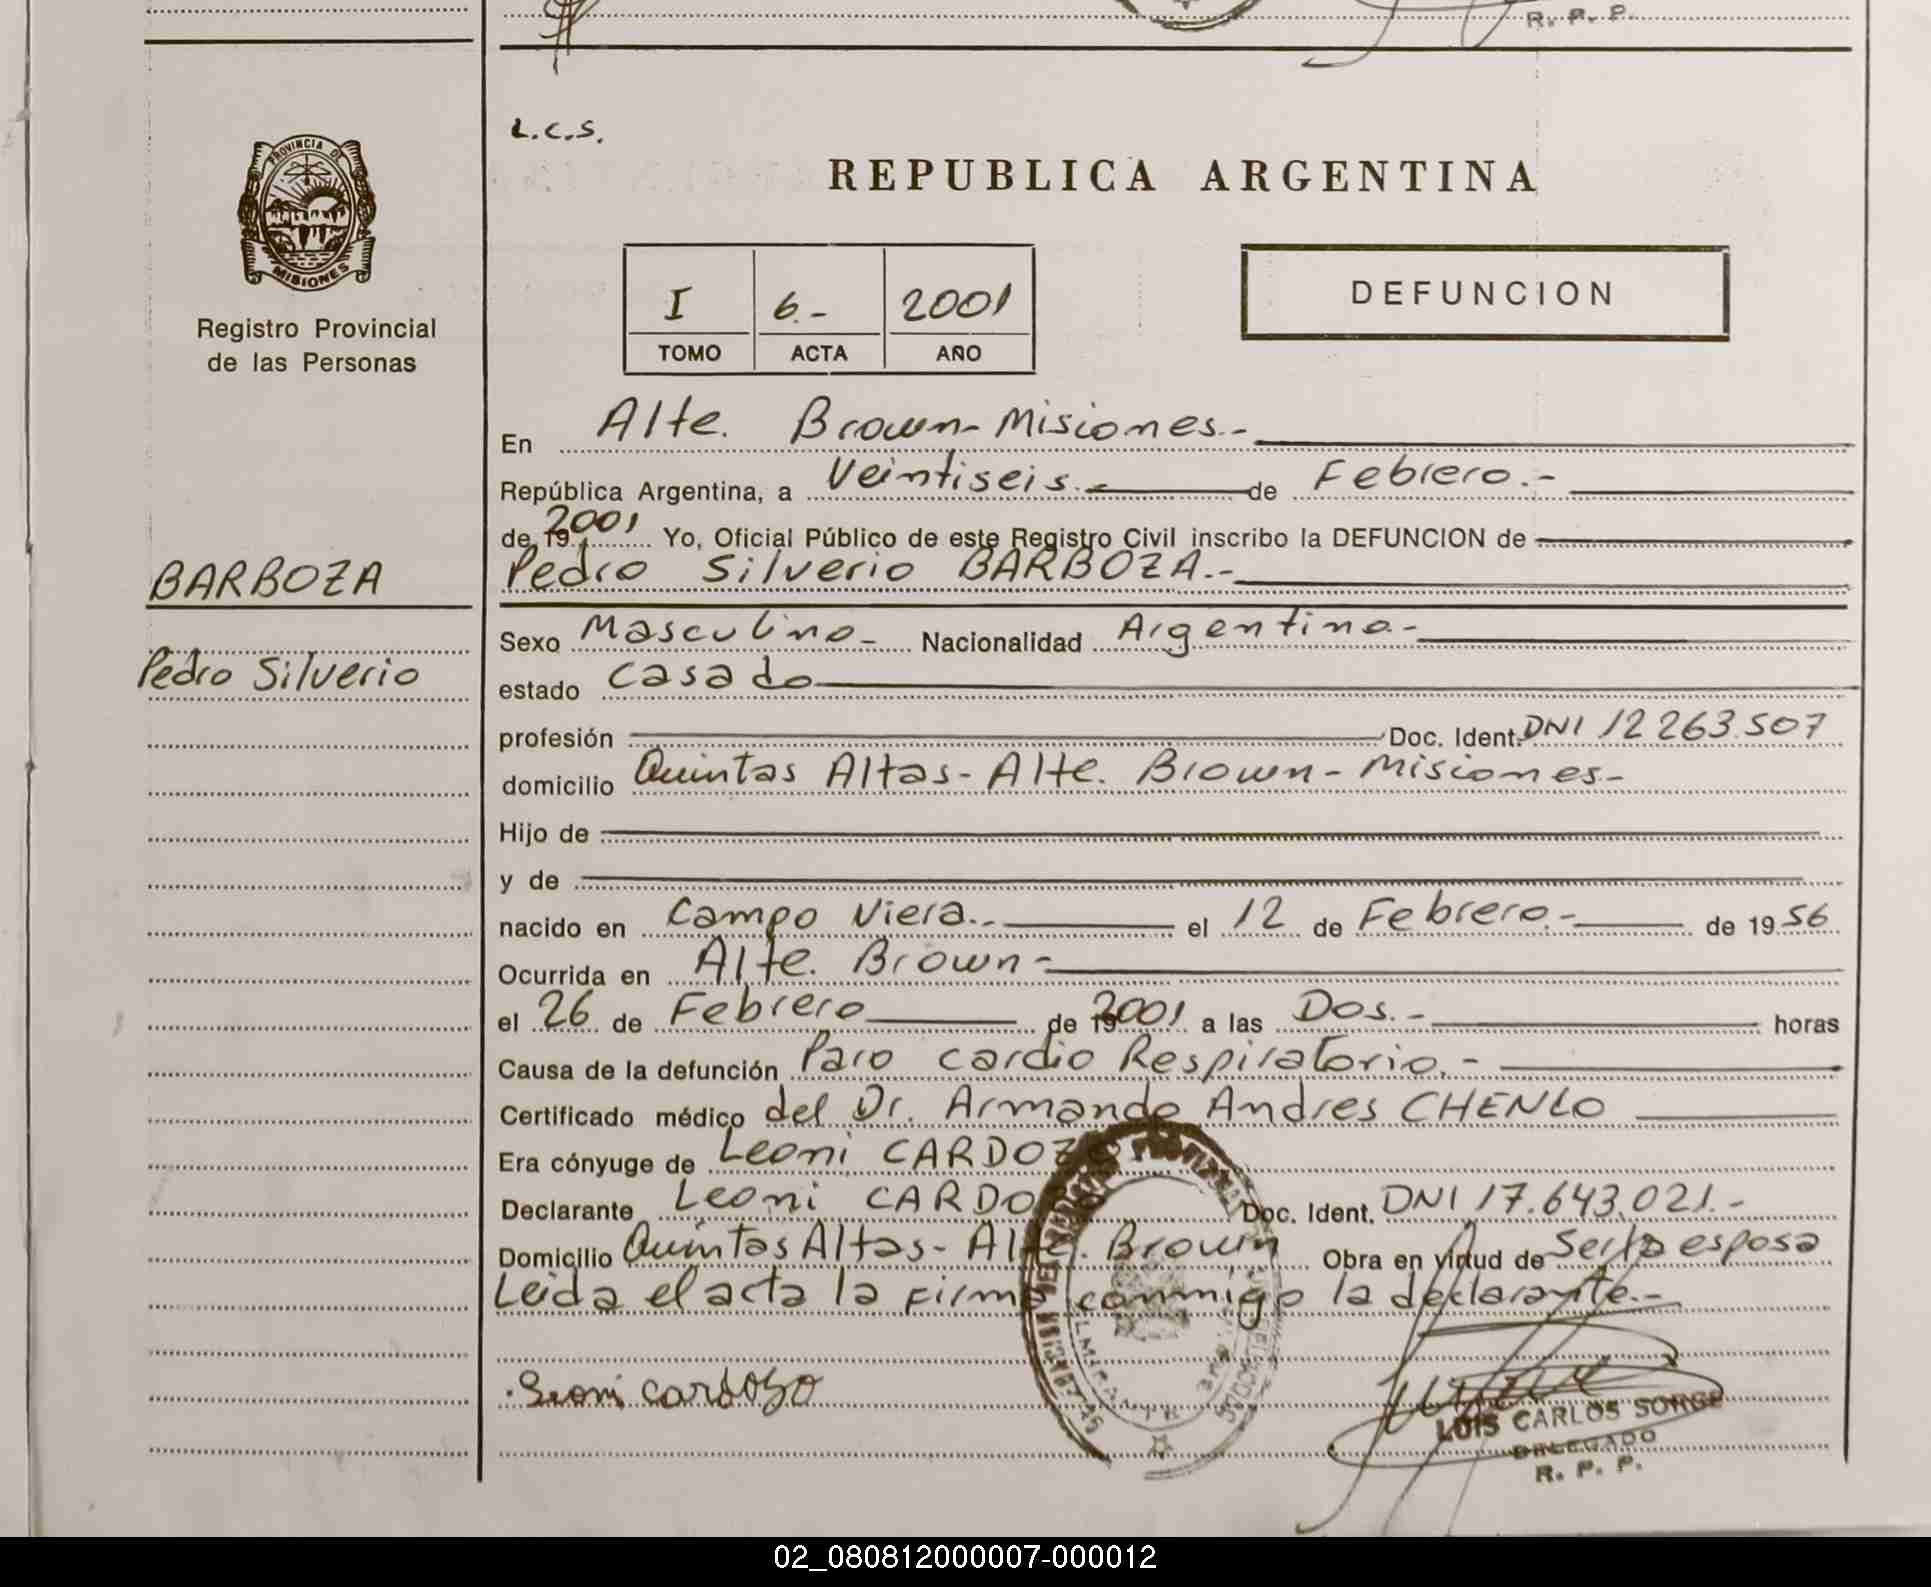 R. P. P.
L.C.S.
REPUBLICA ARGENTINA
PROVINCIA DE
MISIONES
Registro Provincial
de las Personas
I 6.- 2001
TOMO ACTA AÑO
DEFUNCION
En Alte. Brown-Misiones.-
República Argentina, a Veintiseis.- de Febrero.-
de 19 2001 Yo, Oficial Público de este Registro Civil inscribo la DEFUNCION de
BARBOZA
Pedro Silverio BARBOZA.-
Sexo Masculino- Nacionalidad Argentina.-
Pedro Silverio
estado casado
profesión Doc. Ident. DNI 12 263.507
domicilio Quintas Altas- Alte. Brown- Misiones-
Hijo de
y de
nacido en Campo Viera.- el 12 de Febrero.- de 1956
Ocurrida en Alte. Brown-
el 26 de Febrero de 19 2001 a las Dos.- horas
Causa de la defunción Paro cardio Respiratorio.-
Certificado médico del Dr. Armando Andres CHENLO
Era cónyuge de Leoni CARDOZO.
Declarante Leoni CARDOZO Doc. Ident. DNI 17.643.021.-
Domicilio Quintas Altas- Alte. Brown Obra en virtud de Ser la esposa
Leida el acta la firma conmigo la declarante.-
Leoni cardozo
LUIS CARLOS SORGE
DELEGADO
R. P. P.
02_080812000007-000012